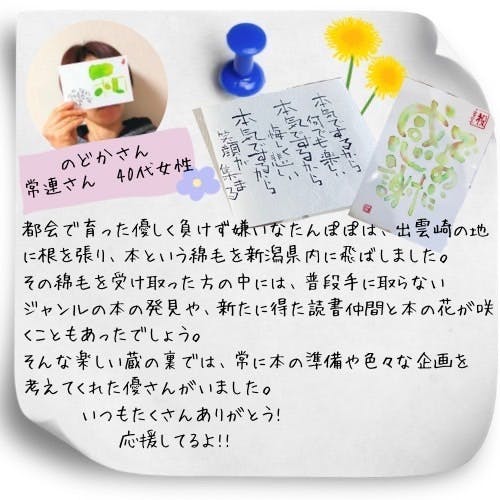 のどかさん
常連さん 40代女性
本気でするから
何でも楽しい
本気でするから
本気でするから
笑顔が集まる
感謝
都会で育った優しく負けず嫌いなたんぽぽは、出雲崎の地
に根を張り、本という綿毛を新潟県内に飛ばしました。
その綿毛を受け取った方の中には、普段手に取らない
ジャンルの本の発見や、新たに得た読書仲間と本の花が咲
くこともあったでしょう。
そんな楽しい蔵の裏では、常に本の準備や色々な企画を
考えてくれた優さんがいました。
いつもたくさんありがとう!
応援してるよ!!